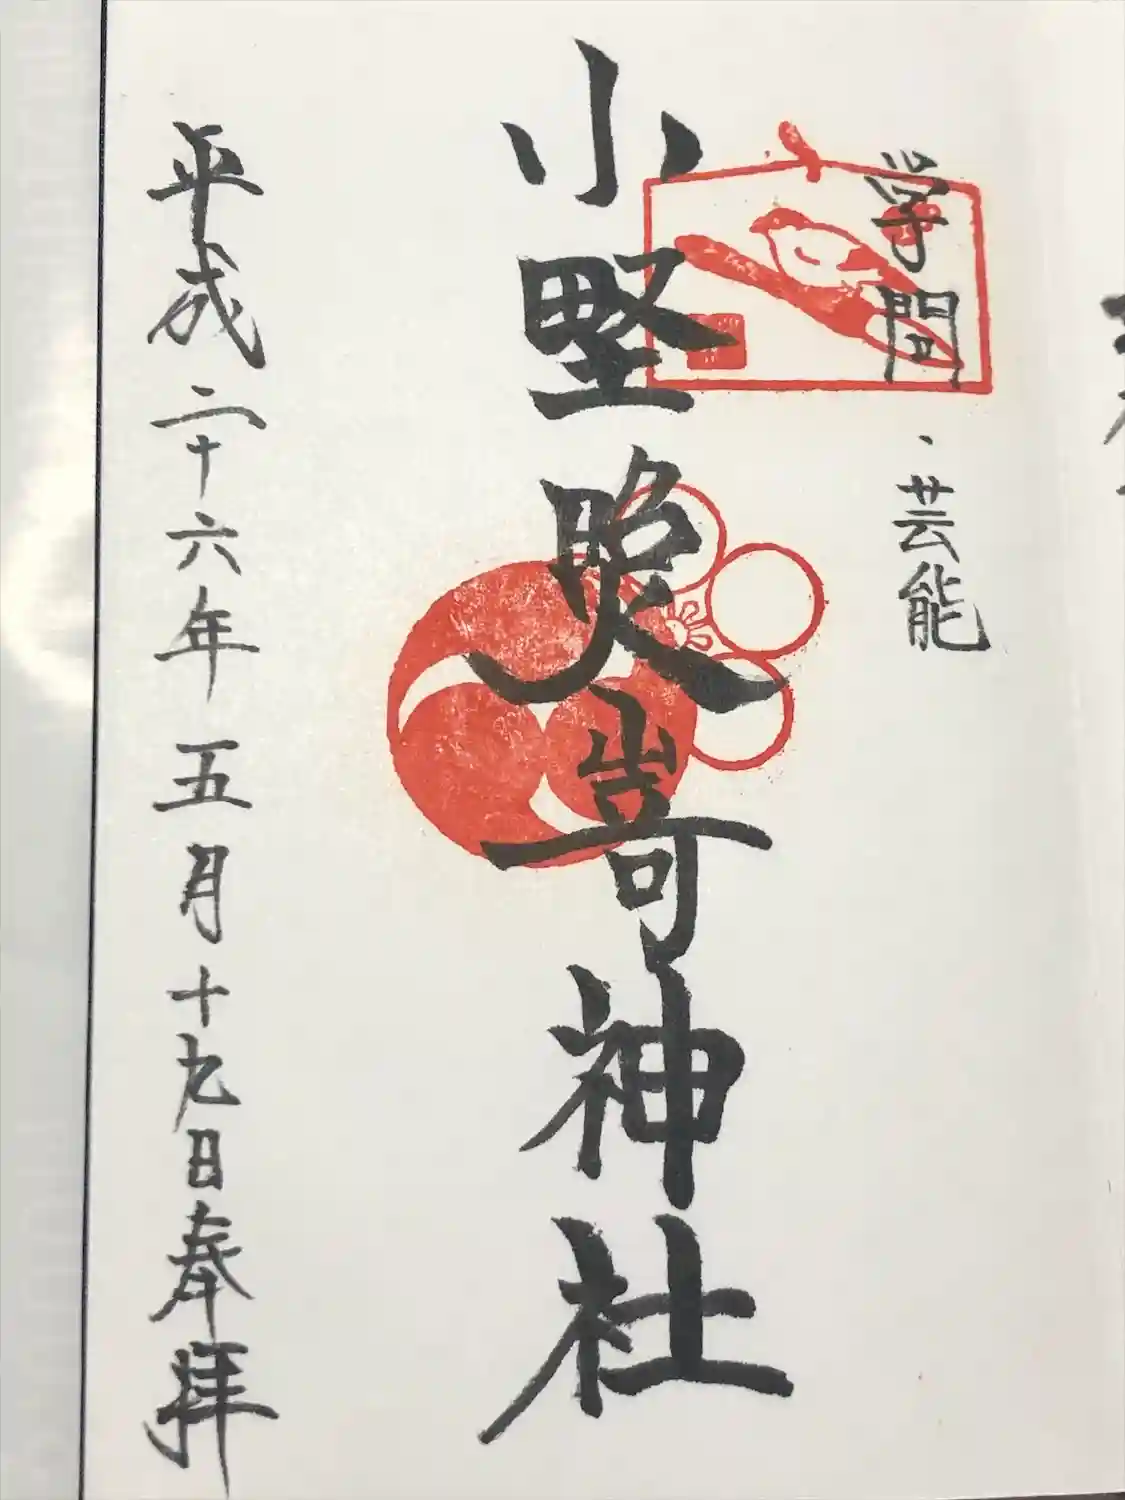 学問・芸能
小野照嵜神社
平成二十六年五月十九日奉拝